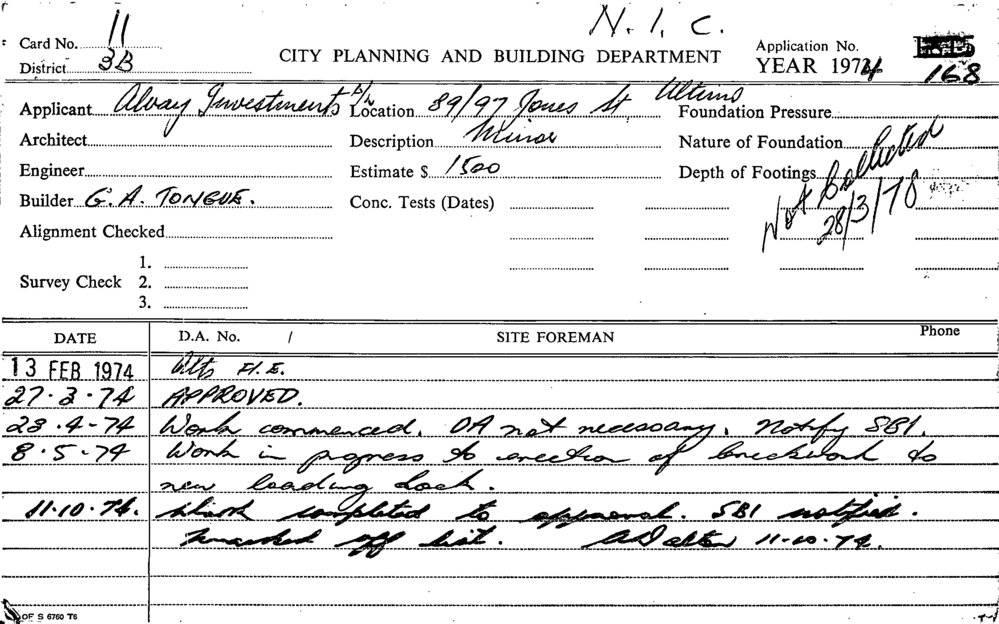 N. I. C.
Card No. 11
District 3B
CITY PLANNING AND BUILDING DEPARTMENT
Application No.
YEAR 1974 168
Applicant Alvay Investments P/L Location 89/97 Jones St Ultimo Foundation Pressure
Architect Description Minor Nature of Foundation
Engineer Estimate $ 1500 Depth of Footings
Not Collected
28/3/78
Builder G. A. TONGUE. Conc. Tests (Dates)
Alignment Checked
Survey Check 1.
2.
3.
DATE D.A. No. / SITE FOREMAN Phone
13 FEB 1974 Alts F.I.E.
27.3.74 APPROVED.
23.4-74 Work commenced. DA not necessary. Notify SBI.
8.5-74 Work in progress to erection of brickwork to
new loading dock.
11.10.74. Work completed to approval. SBI notified.
marked off list. A Dalton 11-10-74.
OF S 6760 T6